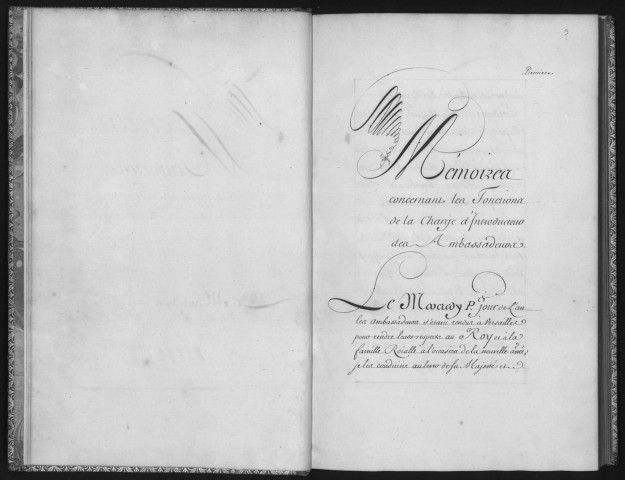 3
Mémoires
concernant les Fonctions
de la Charge d'Introducteur
des Ambassadeurs.
Le Mardy Pr. Jour de l'an
les Ambassadeurs s'étant rendus a Versailles
pour rendre leurs respects au Roy et à la
famille Roialle a l'occasion de la nouvelle année,
je les conduisis au lever de sa Majesté et